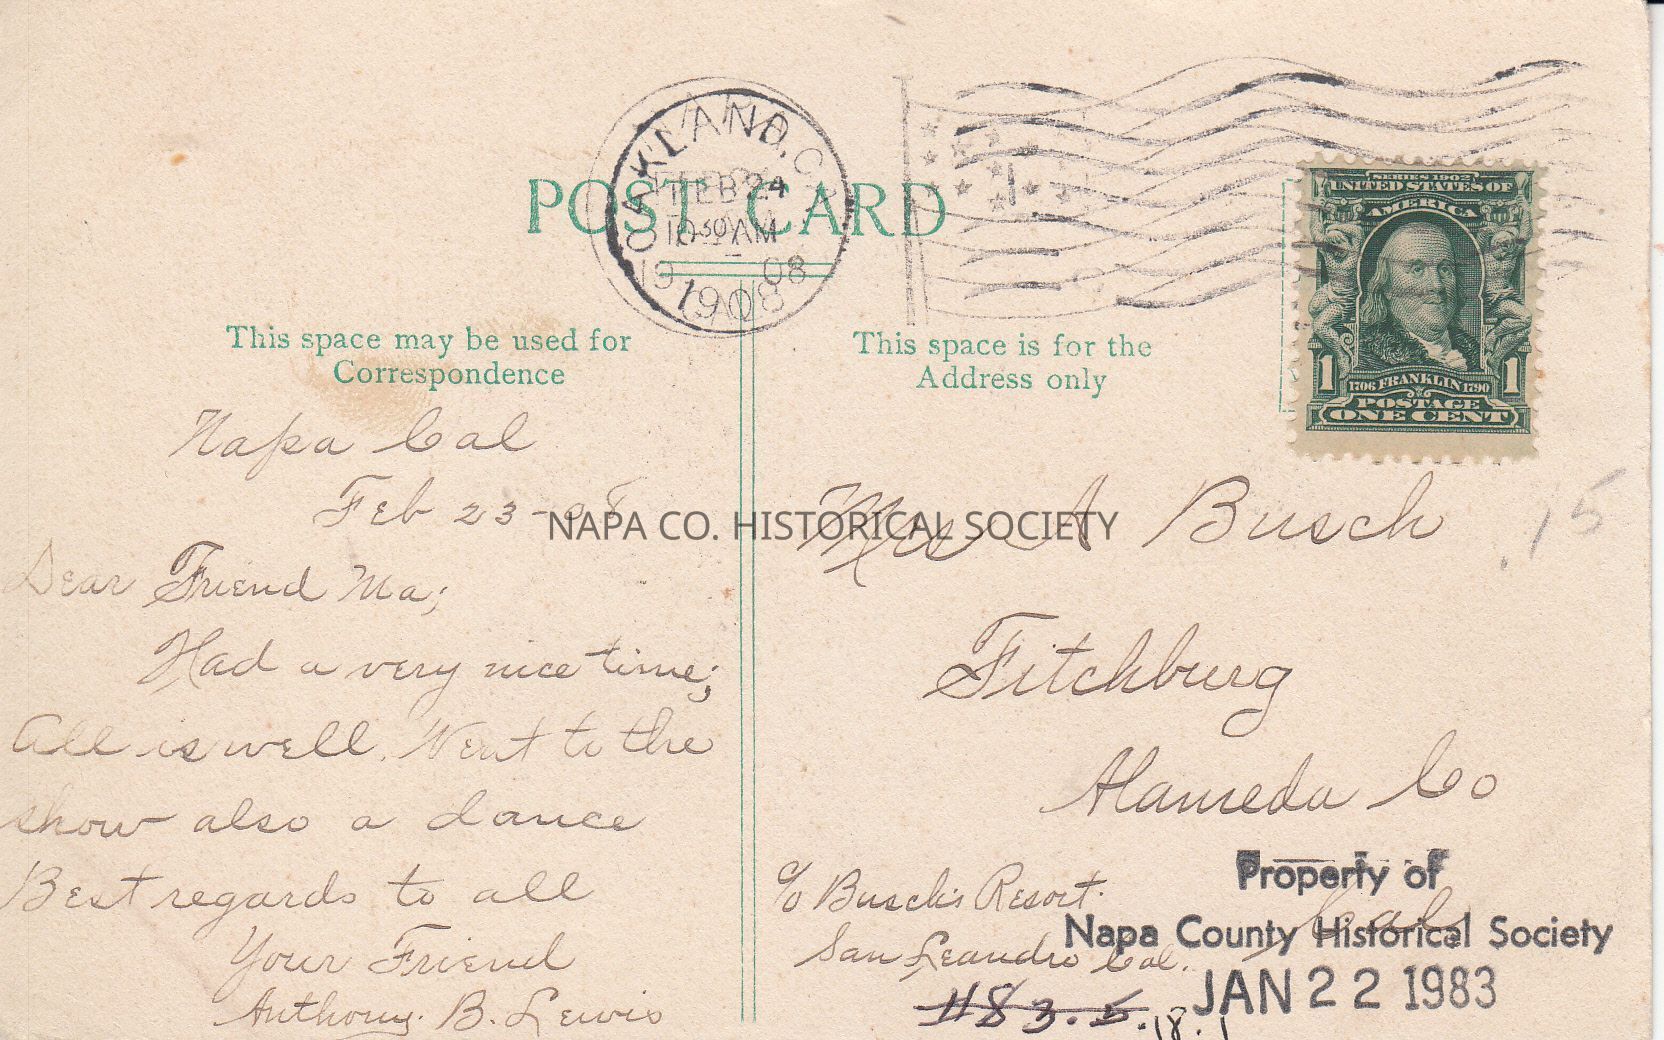 POST CARD
OAKLAND, CAL
FEB 24
10 30 AM
1908
SERIES 1902
UNITED STATES OF
AMERICA
1 1706 FRANKLIN 1790 1
POSTAGE
ONE CENT
This space may be used for
Correspondence
Napa Cal
Feb 23-08
Dear Friend Ma;
Had a very nice time;
All is well. Went to the
show also a dance
Best regards to all
Your Friend
Anthony. B. Lewis
This space is for the
Address only
Mrs A Busch
.15
Fitchburg
Alameda Co
Cal.
c/o Busch's Resort.
San Leandro Cal.
NAPA CO. HISTORICAL SOCIETY
Property of
Napa County Historical Society
JAN 22 1983